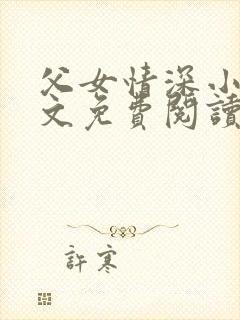 父女情深小
文免費閱讀
許寒